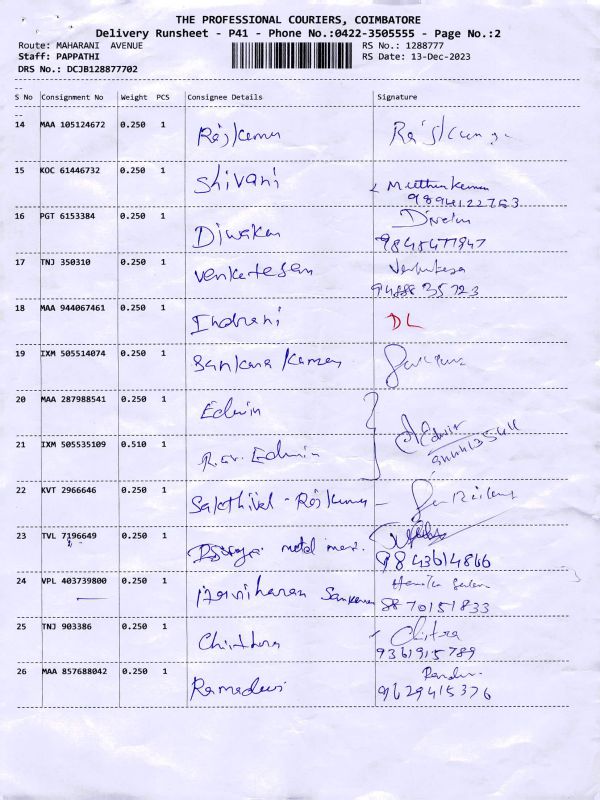 THE PROFESSIONAL COURIERS, COIMBATORE
Delivery Runsheet - P41 - Phone No.:0422-3505555 - Page No.:2
Route: MAHARANI AVENUE RS No.: 1288777
Staff: PAPPATHI RS Date: 13-Dec-2023
DRS No.: DCJB128877702
S No Consignment No Weight PCS Consignee Details Signature
14 MAA 105124672 0.250 1 Rajkumar
15 KOC 61446732 0.250 1 Shivani Muthukumar
9894122753
16 PGT 6153384 0.250 1 Diwakar
17 TNJ 350310 0.250 1 Venketesan
18 MAA 944067461 0.250 1 Indrani DL
19 IXM 505514074 0.250 1 Sankara
20 MAA 287988541 0.250 1 Edwin Edwin
21 IXM 505535109 0.510 1 Edwin
22 KVT 2966646 0.250 1 Sakthivel - Rajkumar
23 TVL 7196649 0.250 1 metal
9843614866
24 VPL 403739800 0.250 1 Harviharan
8870151833
25 TNJ 903386 0.250 1 Chithra Chitra
9361915789
26 MAA 857688042 0.250 1 Ramadevi
9629415376